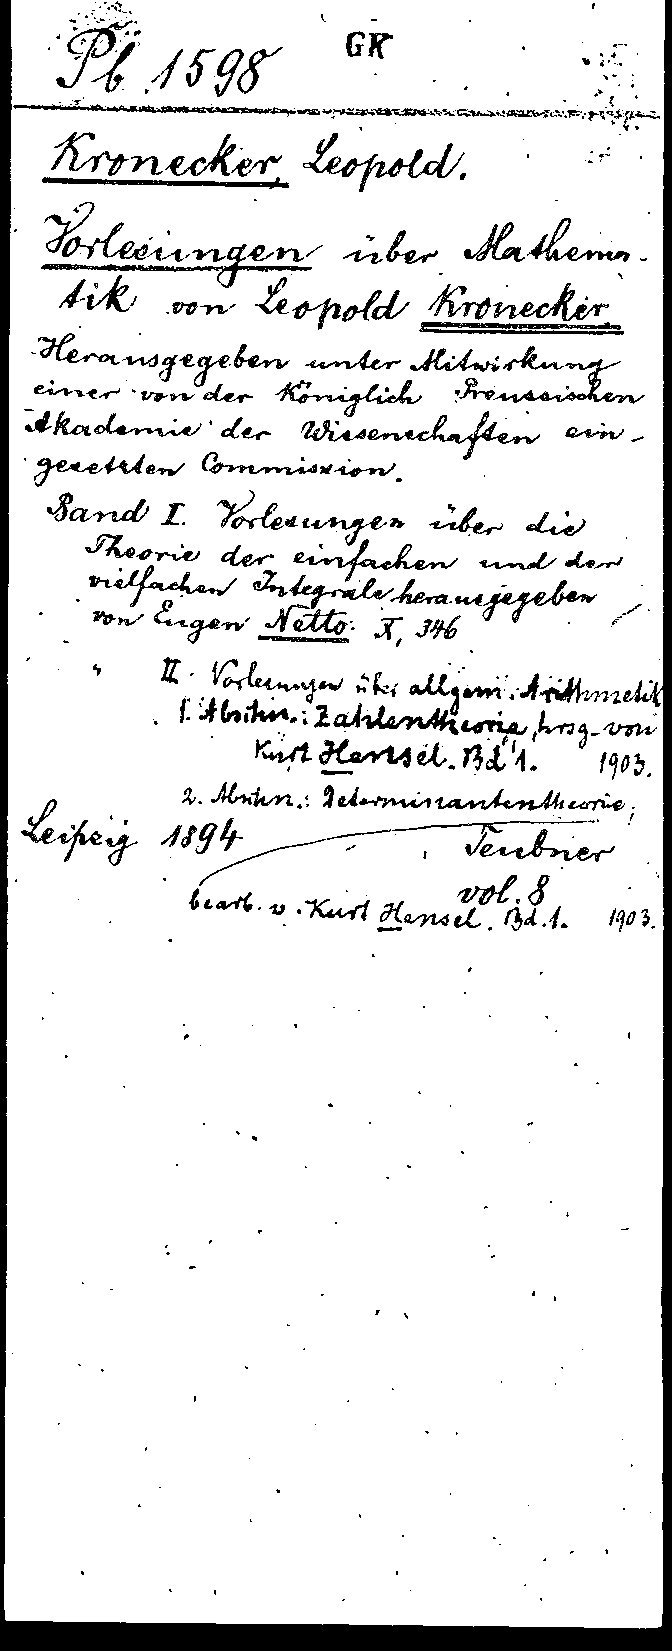 GK
Pb 1598
Kronecker, Leopold.
Vorlesungen über Mathema-
tik von Leopold Kronecker
Herausgegeben unter Mitwirkung
einer von der Königlich Preussischen
Akademie der Wissenschaften ein-
gesetzten Commission.
Band I. Vorlesungen über die
Theorie der einfachen und der
vielfachen Integrale herausgegeben
von Eugen Netto. X, 346
" II. Vorlesungen über allgem. Arithmetik
1. Abschn.: Zahlentheorie, hrsg. von
Kurt Hensel. Bd 1. 1903.
2. Abschn.: Determinantentheorie;
Leipzig 1894 Teubner
vol. 8
bearb. v. Kurt Hensel. Bd. 1. 1903.